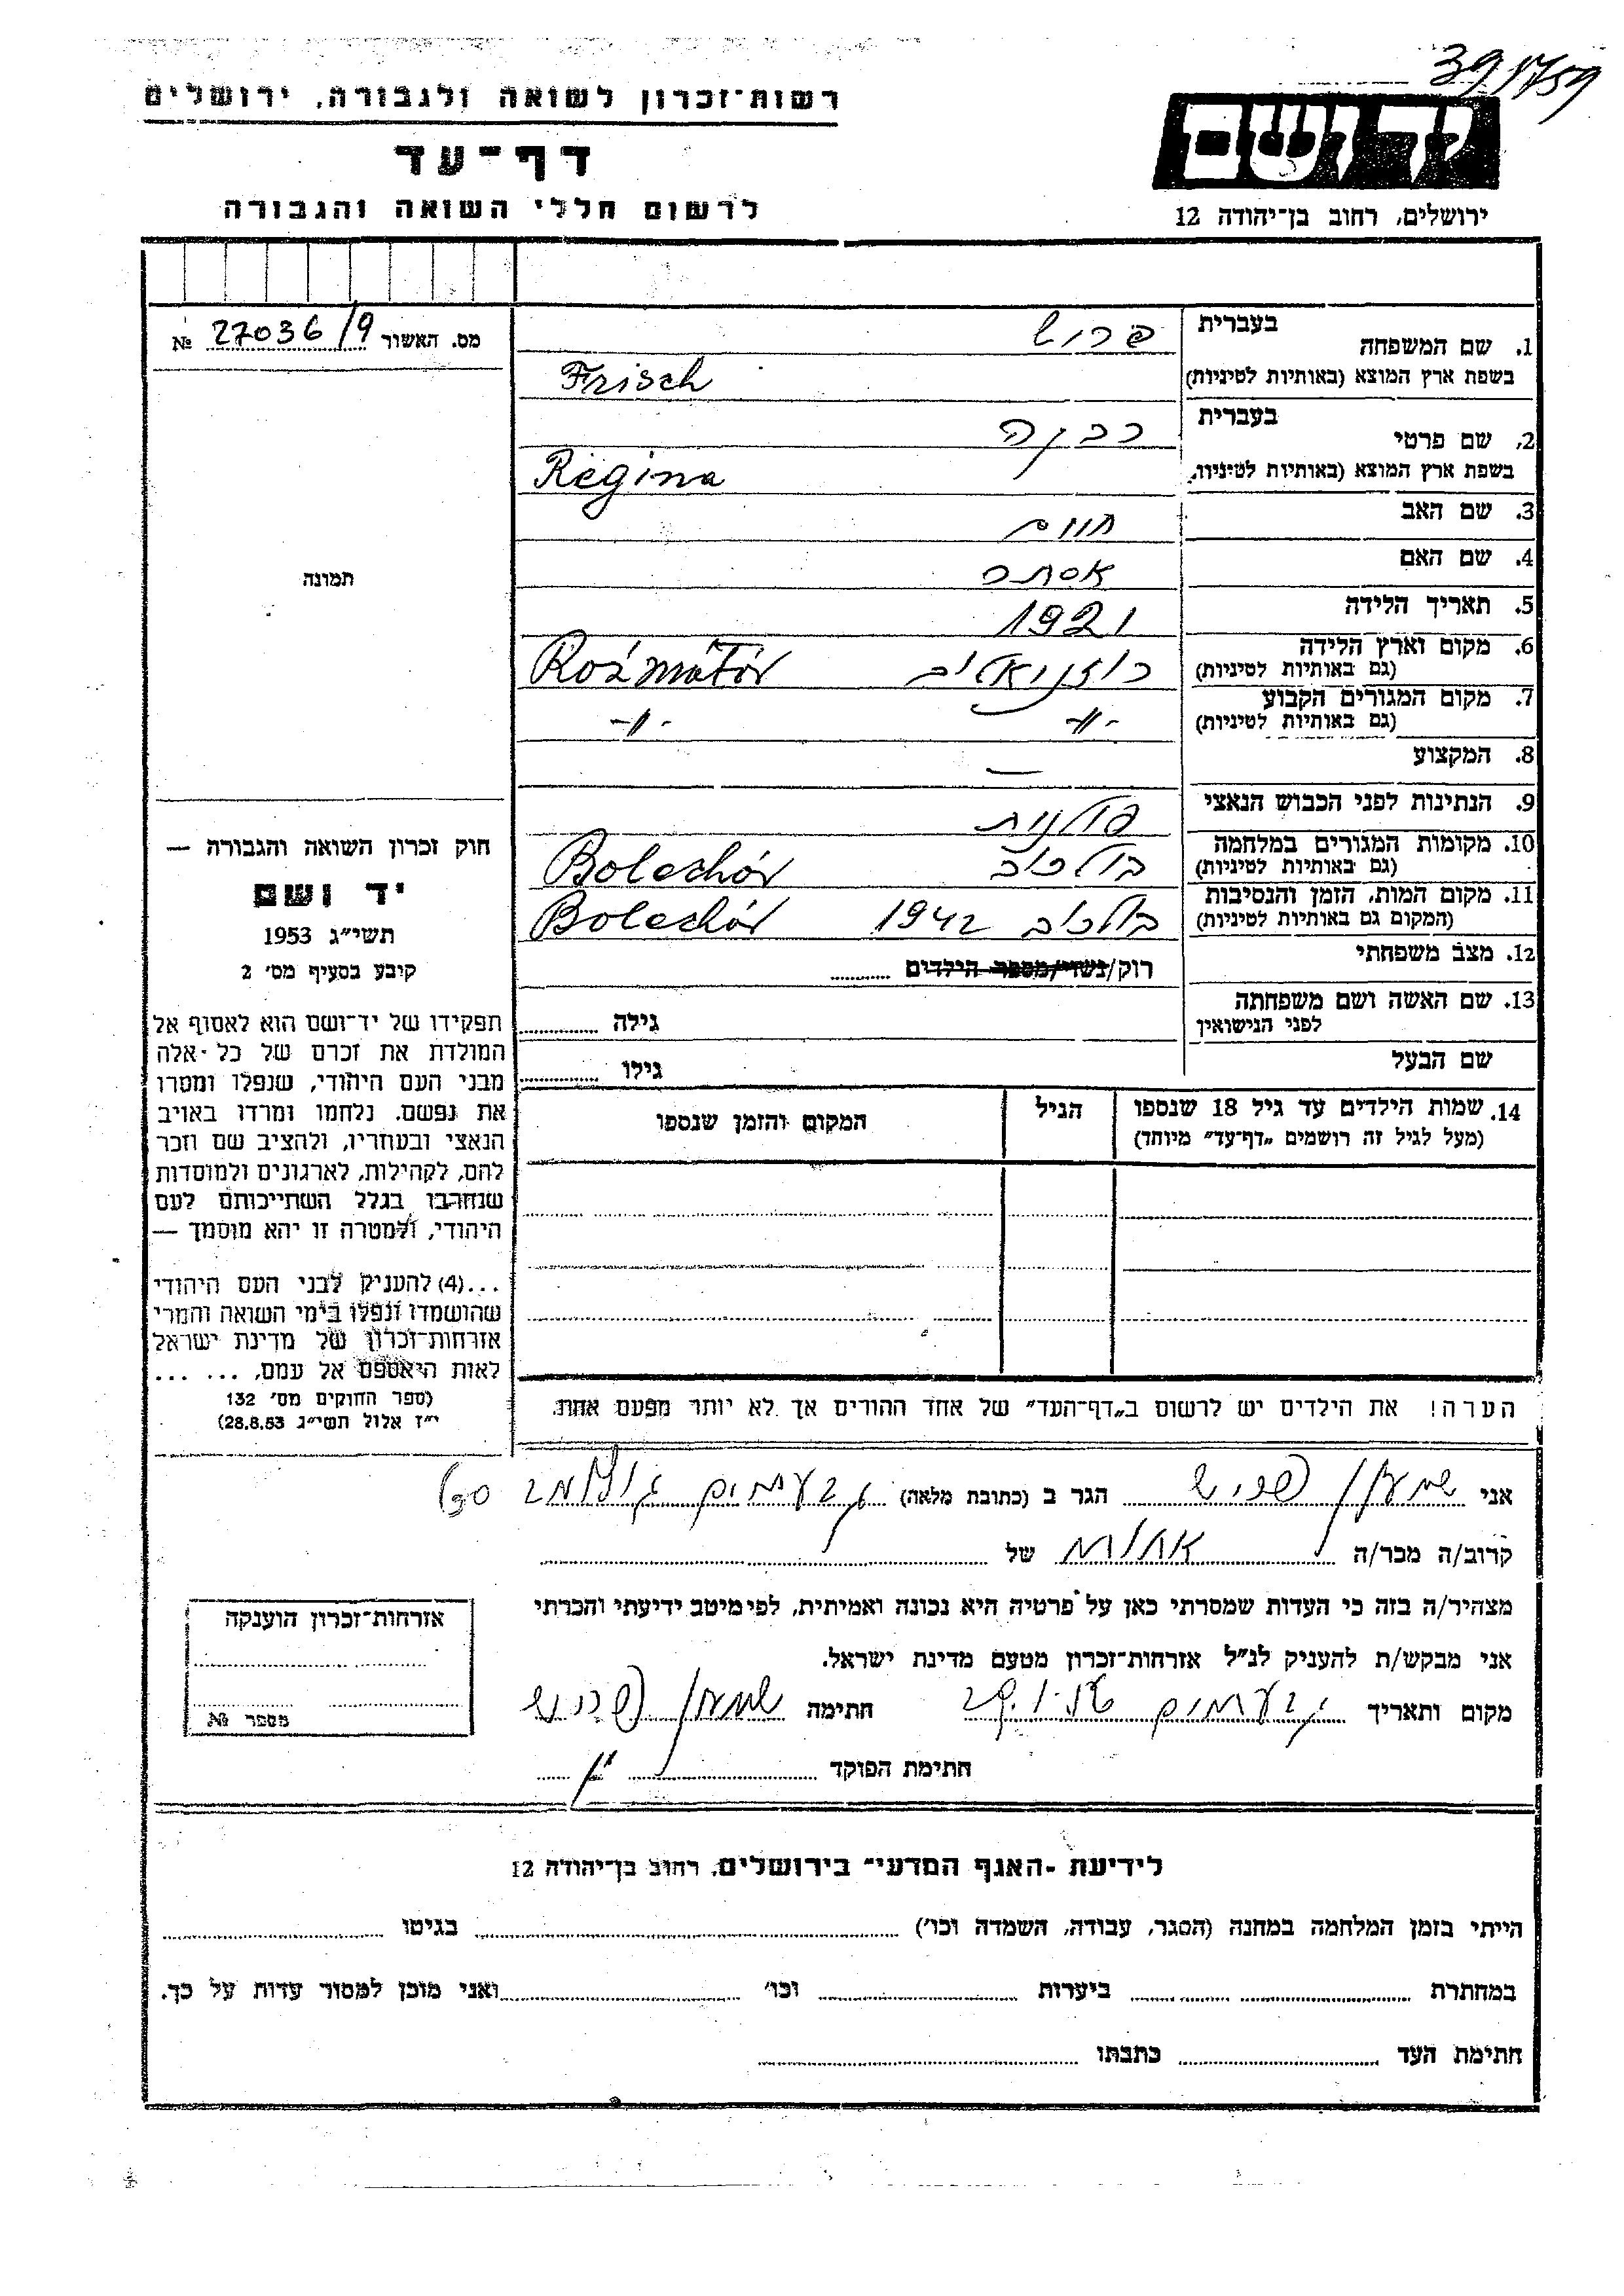 391759
רשות־זכרון לשואה ולגבורה, ירושלים
דף־עד
לרשום חללי השואה והגבורה
יד ושם
ירושלים, רחוב בן־יהודה 12
מס. האשור 27036/9 №
תמונה
חוק זכרון השואה והגבורה —
יד ושם
תשי״ג 1953
קיבע בסעיף מס׳ 2
תפקידו של יד־ושם הוא לאסוף אל
המולדת את זכרם של כל אלה
מבני העם היהודי, שנפלו ומסרו
את נפשם, נלחמו ומרדו באויב
הנאצי ובעוזריו, ולהציב שם וזכר
להם, לקהילות, לארגונים ולמוסדות
שנחרבו בגלל השתייכותם לעם
היהודי, ולמטרה זו יהא מוסמך —
...(4) להעניק לבני העם היהודי
שהושמדו ונפלו בימי השואה והמרי
אזרחות־זכרון של מדינת ישראל
לאות היאספם אל עמם. ... ...
(ספר החוקים מס׳ 132
י״ז אלול תשי״ג 28.8.53)
1. שם המשפחה בעברית פריש
בשפת ארץ המוצא (באותיות לטיניות) Frisch
2. שם פרטי בעברית רבקה
בשפת ארץ המוצא (באותיות לטיניות) Regina
3. שם האב חיים
4. שם האם אסתר
5. תאריך הלידה 1921
6. מקום וארץ הלידה
(גם באותיות לטיניות) רוזניאטוב Rożniatów
7. מקום המגורים הקבוע
(גם באותיות לטיניות) -״- -״-
8. המקצוע —
9. הנתינות לפני הכבוש הנאצי פולנית
10. מקומות המגורים במלחמה
(גם באותיות לטיניות) בולכוב Bolechów
11. מקום המות, הזמן והנסיבות
(המקום גם באותיות לטיניות) בולכוב 1942 Bolechów
12. מצב משפחתי רוק/נשוי/מספר הילדים
13. שם האשה ושם משפחתה
לפני הנישואין גילה
שם הבעל גילו
14. שמות הילדים עד גיל 18 שנספו הגיל המקום והזמן שנספו
(מעל לגיל זה רושמים „דף־עד״ מיוחד)
הערה! את הילדים יש לרשום ב„דף־העד״ של אחד ההורים אך לא יותר מפעם אחת.
אני שמעון פריש הגר ב (כתובת מלאה) גבעתיים
קרוב/ה מכר/ה אחות של
מצהיר/ה בזה כי העדות שמסרתי כאן על פרטיה היא נכונה ואמיתית, לפי מיטב ידיעתי והכרתי
אני מבקש/ת להעניק לנ״ל אזרחות־זכרון מטעם מדינת ישראל.
מקום ותאריך גבעתיים חתימה שמעון פריש
חתימת הפוקד
אזרחות־זכרון הוענקה
מספר №
לידיעת -האגף המדעי־ בירושלים, רחוב בן־יהודה 12
הייתי בזמן המלחמה במחנה (הסגר, עבודה, השמדה וכו׳) בגיטו
במחתרת ביערות וכו׳ ואני מוכן למסור עדות על כך.
חתימת העד כתבתו